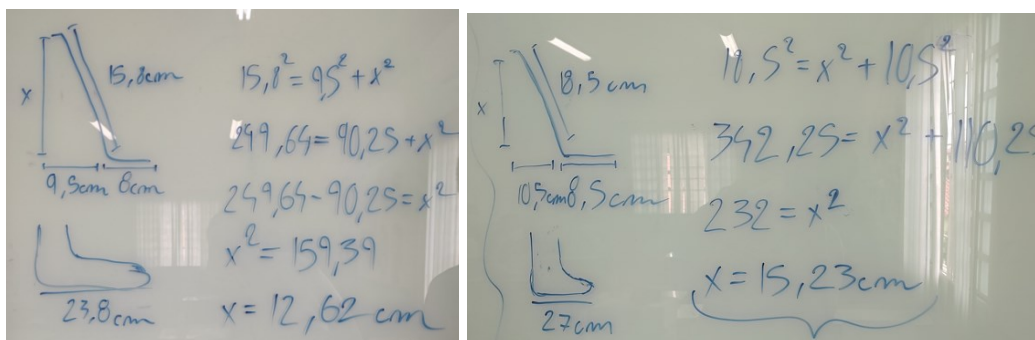 x
15,8cm
9,5cm 8cm
23,8cm
15,8² = 9,5² + x²
249,64 = 90,25 + x²
249,64 - 90,25 = x²
x² = 159,39
x = 12,62 cm
x
18,5cm
10,5cm 8,5cm
27cm
18,5² = x² + 10,5²
342,25 = x² + 110,25
232 = x²
x = 15,23cm